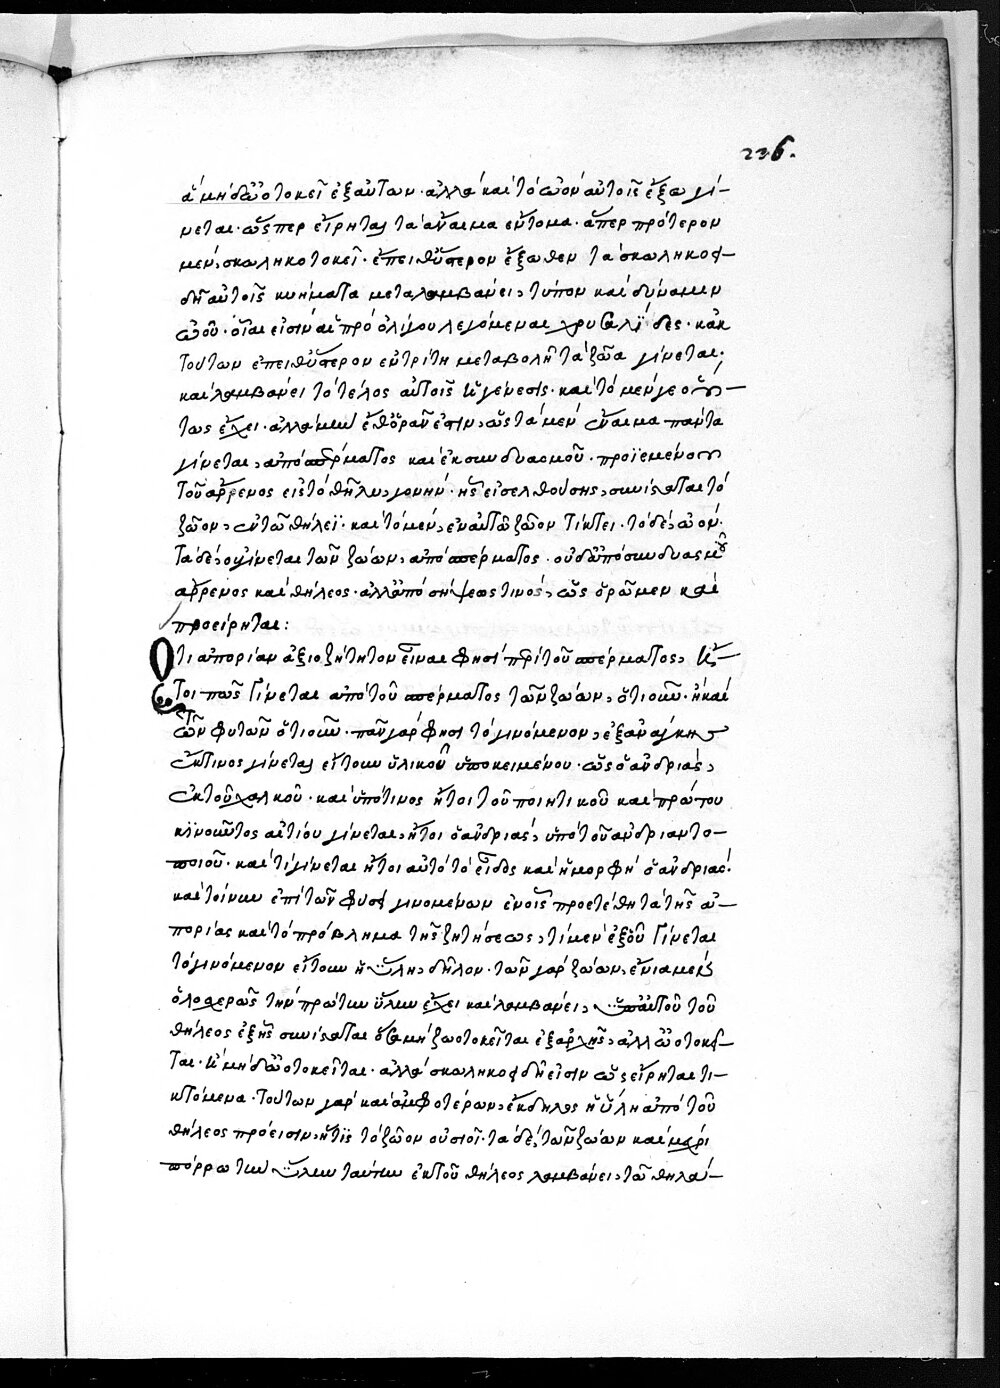 236.
ἃ μὴ δ' ὠοτοκεῖ ἐξ αὐτῶν· ἀλλὰ καὶ τὸ ὠὸν αὐτοῖς ἔξω γί-
νεται· ὥσπερ εἴρηται τὰ ἄναιμα ἔντομα· ἅπερ πρότερον
μὲν, σκωληκοτοκεῖ· ἔπειθ' ὕστερον ἔξωθεν τὰ σκωληκο-
δὴ αὐτοῖς κυήματα μεταλαμβάνει, τύπον καὶ δύναμιν
ὠοῦ· οἷαι εἰσὶν αἱ πρὸ ὀλίγου λεγόμεναι χρυσαλΐδες· κἀκ
τούτων ἔπειθ' ὕστερον ἐν τρίτῃ μεταβολῇ τὰ ζῶα γίνεται·
καὶ λαμβάνει τὸ τέλος αὐτοῖς ἡ γένεσις· καὶ τὸ μέν γε οὕ-
τως ἔχει· ἀλλὰ μὴν ἔθ' ὁρᾶν ἐστιν, ὡς τὰ μὲν ἔναιμα πάντα
γίνεται, ἀπὸ σπέρματος καὶ ἐκ συνδυασμοῦ· προϊεμένου
τοῦ ἄρρενος εἰς τὸ θῆλυ, γονήν· ἧς εἰσελθούσης, συνίσταται τὸ
ζῶον, ἐν τῶ θήλεϊ· καὶ τὸ μὲν, ἐν αὐτῶ ζῶον τίκτει· τὸ δὲ, ὠόν·
τὰ δὲ, οὐ γίνεται τῶν ζώων, ἀπὸ σπέρματος· οὐδ' ἀπὸ συνδυασμοῦ
ἄρρενος καὶ θήλεος· ἀλλ' ἀπὸ σήψεώς τινος, ὡς ὁρῶμεν καὶ
προείρηται:
Ὅτι ἀπορίαν ἀξιοζήτητον εἶναι φησὶ περὶ τοῦ σπέρματος, ἤ-
τοι πῶς γίνεται ἀπὸ τοῦ σπέρματος τῶν ζώων, ὁτιοῦν· ἢ καὶ
τῶν φυτῶν ὁτιοῦν· πᾶν γάρ φησι τὸ γινόμενον, ἐξ ἀνάγκης
ἔκ τινος γίνεται εἴτουν ὑλικοῦ ὑποκειμένου· ὡς ὁ ἀνδριὰς,
ἐκ τοῦ χαλκοῦ· καὶ ὑπό τινος ἤτοι τοῦ ποιητικοῦ καὶ πρώτου
κινοῦντος αἰτίου γίνεται, ἤτοι ὁ ἀνδριὰς, ὑπὸ τοῦ ἀνδριαντο-
ποιοῦ· καὶ τὶ γίνεται ἤτοι αὐτὸ τὸ εἶδος καὶ ἡ μορφὴ ὁ ἀνδριάς·
καὶ τοίνυν ἐπὶ τῶν φύσει γινομένων ἐν οἷς προετέθη τὰ τῆς ἀ-
πορίας καὶ τὸ πρόβλημα τῆς ζητήσεως, τί μὲν ἐξ οὗ γίνεται
τὸ γινόμενον εἴτουν ἡ ὕλη, δῆλον· τῶν γὰρ ζώων, ἔνια μὲν
ὁλοσχερῶς τὴν πρώτην ὕλην ἔχει καὶ λαμβάνει, ἐξ αὐτοῦ τοῦ
θήλεος ἐξ ἧς συνίσταται ὅσα μὴ ζωοτοκεῖται ἐξ ἀρχῆς, ἀλλ' ὠοτοκεῖ-
ται· ἢ μὴ δ' ὠοτοκεῖται· ἀλλὰ σκωληκοειδῆ εἰσιν ὡς εἴρηται τι-
κτόμενα· τούτων γὰρ καὶ ἀμφοτέρων, ἔκδηλος ἡ ὕλη ἀπὸ τοῦ
θήλεος πρόεισιν, ἥτις τὸ ζῶον οὐσιοῖ· τὰ δὲ, τῶν ζώων καὶ μέχρι
πόρρω τὴν ὕλην ταύτην ἐκ τοῦ θήλεος λαμβάνει, τῶ θηλά-